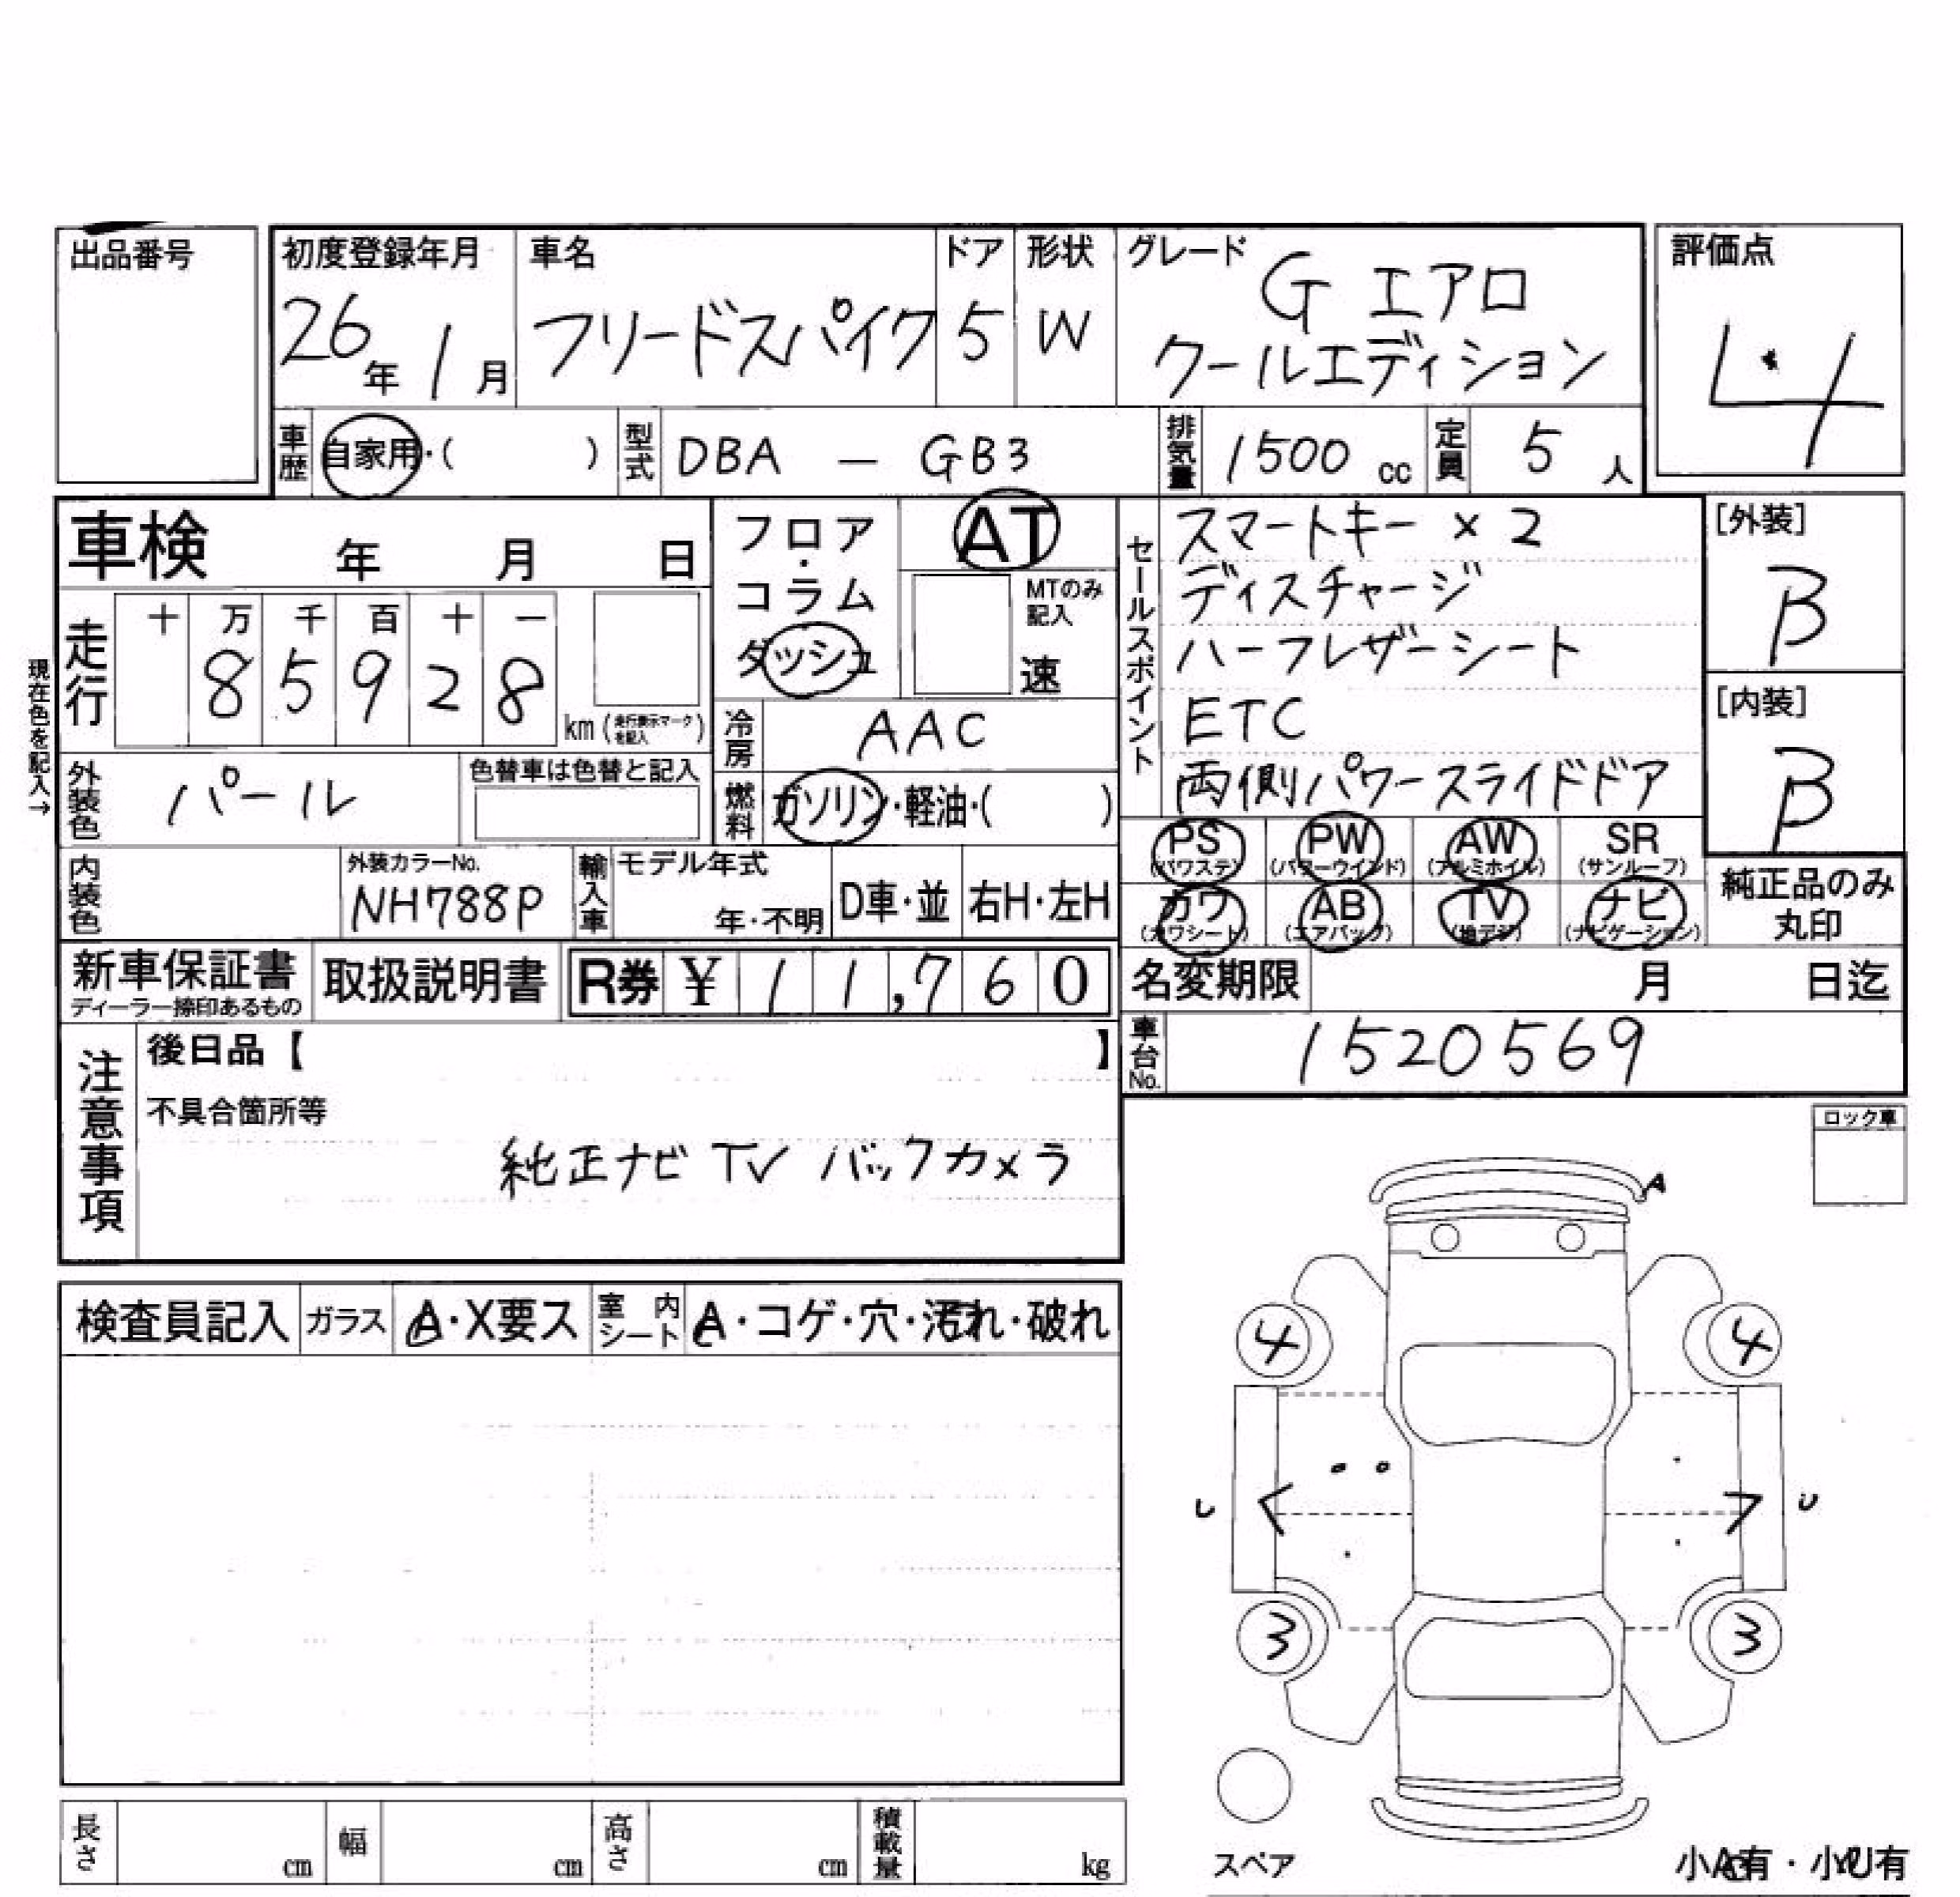 出品番号
初度登録年月 車名 ドア 形状 グレード 評価点
26年 1月 フリードスパイク 5 W G エアロ
クールエディション
4
車歴 自家用・( ) 型式 DBA - GB3 排気量 1500 cc 定員 5 人
車検 年 月 日
フロア・コラム
ダッシュ
AT
MTのみ記入
速
セールスポイント
スマートキー × 2
ディスチャージ
ハーフレザーシート
ETC
両側パワースライドドア
[外装]
B
[内装]
B
現在色を記入→
走行 十 万 千 百 十 一
8 5 9 2 8 km (走行表示マークを記入)
冷房 AAC
外装色 パール 色替車は色替と記入
燃料 ガソリン・軽油・( )
内装色 外装カラーNo. NH788P 輸入車 モデル年式 年・不明 D車・並 右H・左H
PS (パワステ) PW (パワーウインド) AW (アルミホイル) SR (サンルーフ)
カワ (カワシート) AB (エアバック) TV (地デジ) ナビ (ナビゲーション)
純正品のみ
丸印
新車保証書 取扱説明書 R券 ¥ 11,760
ディーラー捺印あるもの
名変期限 月 日迄
車台No. 1520569
注意事項
後日品【 】
不具合箇所等
純正ナビ TV バックカメラ
ロック車
A
検査員記入 ガラス A・X要ス 室内シート A・コゲ・穴・汚れ・破れ
4 4
U U
3 3
スペア
小A有・小U有
長さ cm 幅 cm 高さ cm 積載量 kg